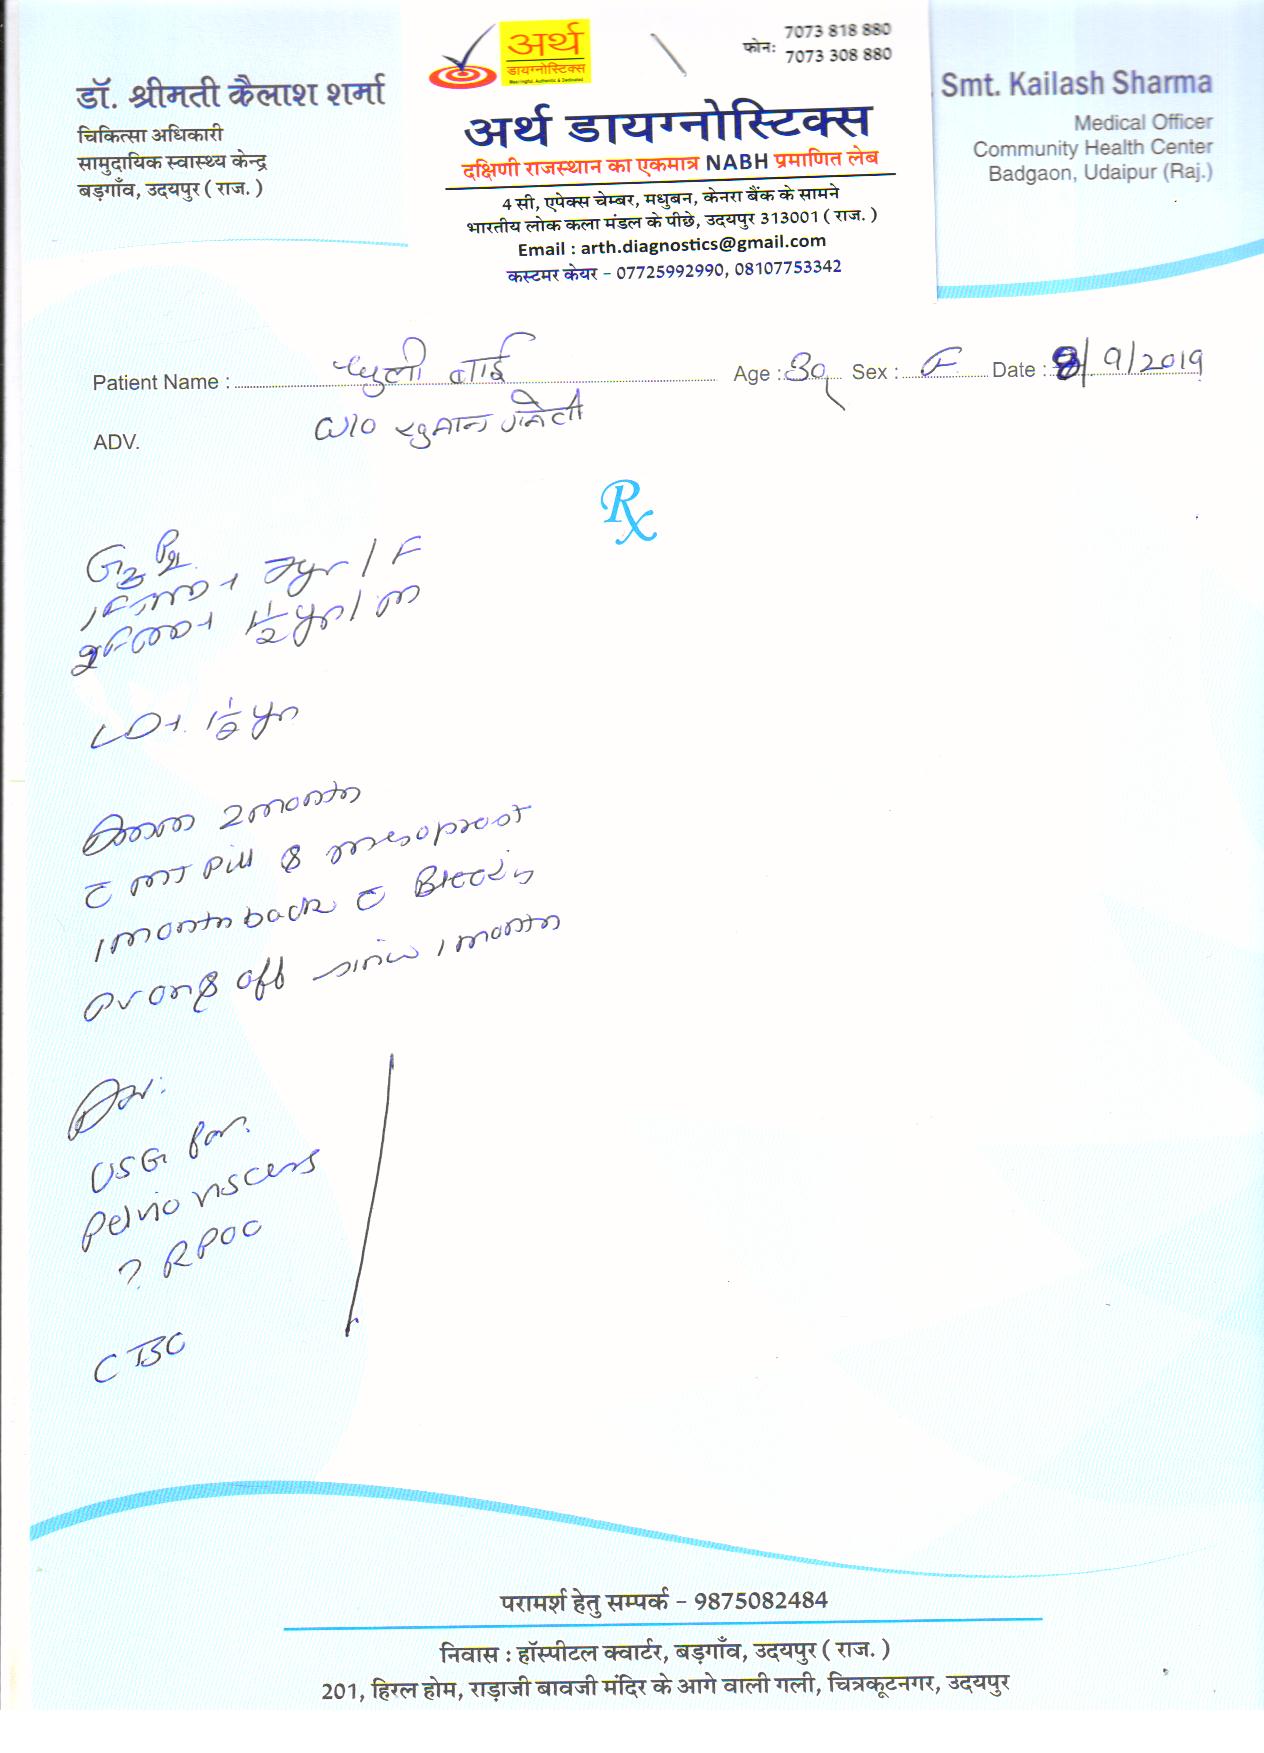 डॉ. श्रीमती कैलाश शर्मा
चिकित्सा अधिकारी
सामुदायिक स्वास्थ्य केन्द्र
बड़गाँव, उदयपुर ( राज. )
अर्थ
डायग्नोस्टिक्स
फोन: 7073 818 880
7073 308 880
अर्थ डायग्नोस्टिक्स
दक्षिणी राजस्थान का एकमात्र NABH प्रमाणित लेब
4 सी, एपेक्स चेम्बर, मधुबन, केनरा बैंक के सामने
भारतीय लोक कला मंडल के पीछे, उदयपुर 313001 ( राज. )
Email : arth.diagnostics@gmail.com
कस्टमर केयर – 07725992990, 08107753342
Smt. Kailash Sharma
Medical Officer
Community Health Center
Badgaon, Udaipur (Raj.)
Patient Name : बाई Age : 30 Sex : F Date : 8/9/2019
W/O
ADV.
Rx
G3 P2
1 FTND + 7yr / F
2 FTND + 1 1/2 yr / m
LD + 1 1/2 yr
2 month
c MT Pill & mesoprost
1 month back c Bleeding
on & off since 1 month
Adv:
USG for
pelvic viscera
? RPOC
CBC
परामर्श हेतु सम्पर्क – 9875082484
निवास : हॉस्पीटल क्वार्टर, बड़गाँव, उदयपुर ( राज. )
201, हिरल होम, राड़ाजी बावजी मंदिर के आगे वाली गली, चित्रकूटनगर, उदयपुर